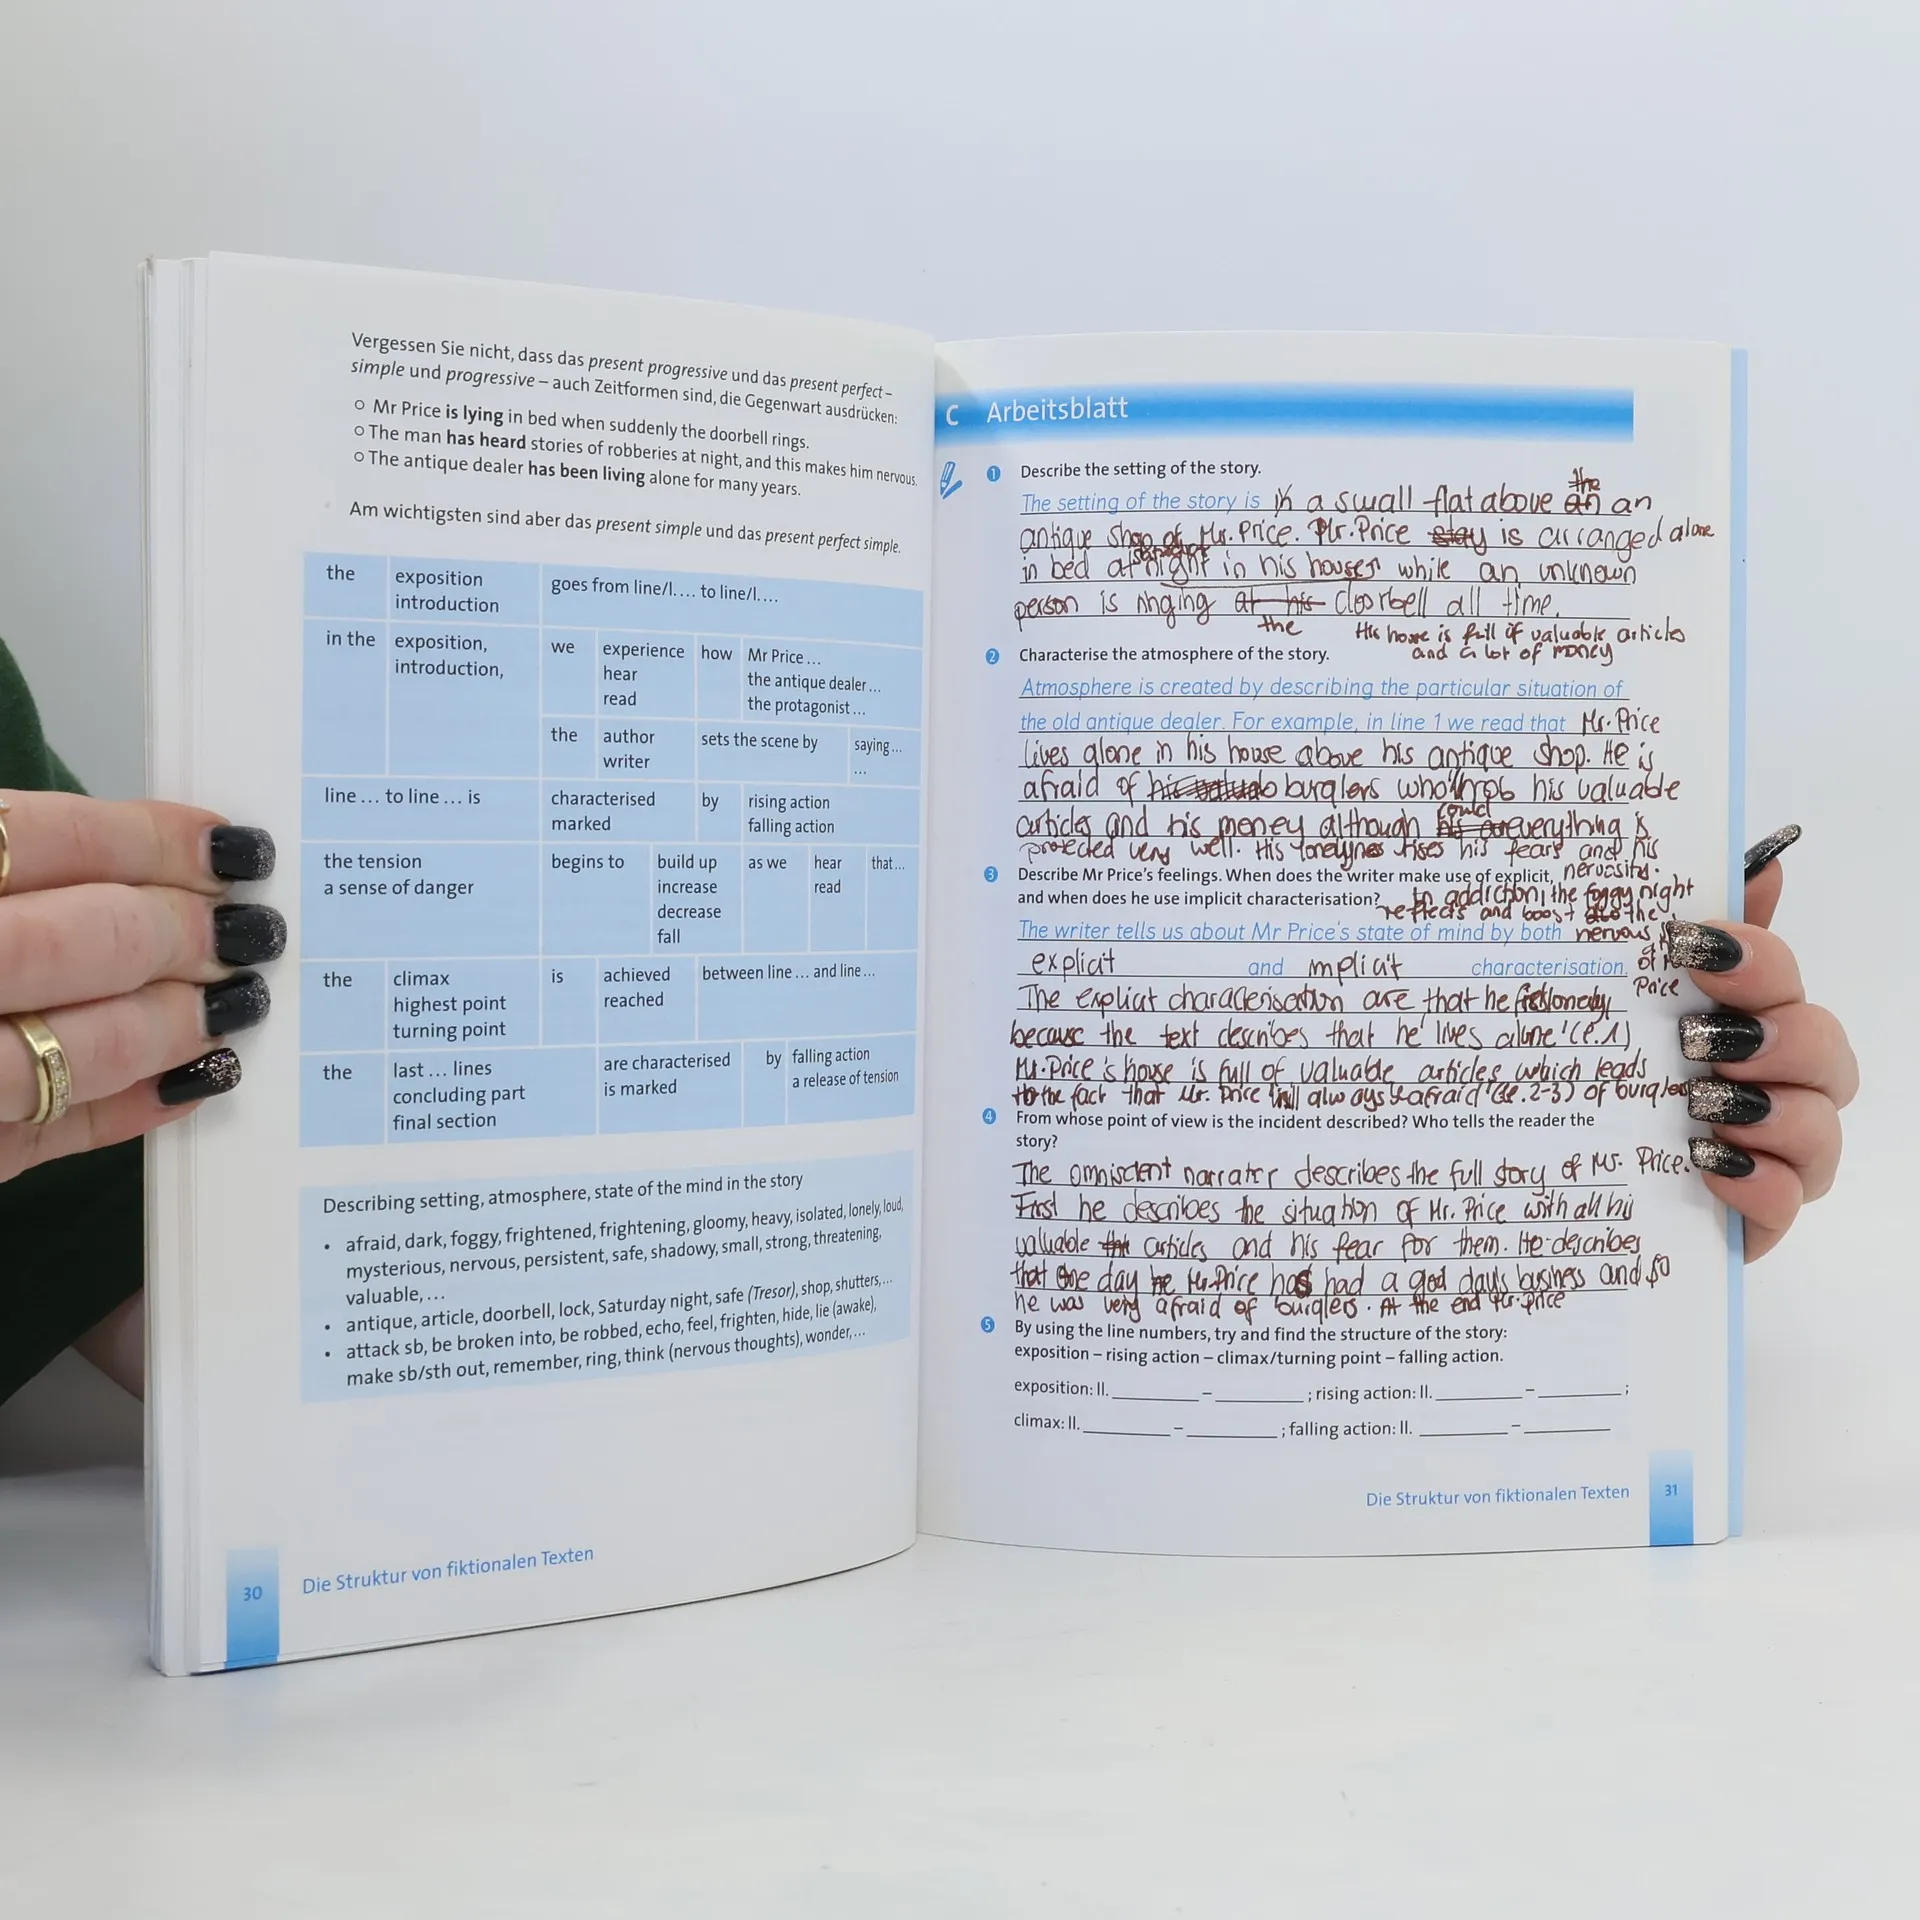 Vergessen Sie nicht, dass das present progressive und das present perfect –
simple und progressive – auch Zeitformen sind, die Gegenwart ausdrücken:
○ Mr Price is lying in bed when suddenly the doorbell rings.
○ The man has heard stories of robberies at night, and this makes him nervous.
○ The antique dealer has been living alone for many years.
Am wichtigsten sind aber das present simple und das present perfect simple.
the exposition goes from line/l. ... to line/l. ...
introduction
in the exposition, we experience how Mr Price ...
introduction, hear the antique dealer ...
read the protagonist ...
the author sets the scene by saying ...
writer ...
line ... to line ... is characterised by rising action
marked falling action
the tension begins to build up as we hear that ...
a sense of danger increase read
decrease
fall
the climax is achieved between line ... and line ...
highest point reached
turning point
the last ... lines are characterised by falling action
concluding part is marked a release of tension
final section
Describing setting, atmosphere, state of the mind in the story
• afraid, dark, foggy, frightened, frightening, gloomy, heavy, isolated, lonely, loud,
mysterious, nervous, persistent, safe, shadowy, small, strong, threatening,
valuable, ...
• antique, article, doorbell, lock, Saturday night, safe (Tresor), shop, shutters, ...
• attack sb, be broken into, be robbed, echo, feel, frighten, hide, lie (awake),
make sb/sth out, remember, ring, think (nervous thoughts), wonder, ...
30 Die Struktur von fiktionalen Texten
C Arbeitsblatt
1 Describe the setting of the story.
the
The setting of the story is in a small flat above an an
antique shop of Mr. Price. Mr. Price stay is arranged alone
in bed at night in his houses while an unknown
person is ringing at his doorbell all time.
the His house is full of valuable articles
and a lot of money
2 Characterise the atmosphere of the story.
Atmosphere is created by describing the particular situation of
the old antique dealer. For example, in line 1 we read that Mr. Price
lives alone in his house above his antique shop. He is
afraid of his burglers who rob his valuable
could
articles and his money although everything is
protected very well. His lonelynes rises his fears and his
nervosity.
3 Describe Mr Price's feelings. When does the writer make use of explicit,
and when does he use implicit characterisation?
In addiction, the foggy night
reflects and boost the
The writer tells us about Mr Price's state of mind by both nervous
explicit and implicit characterisation. of
Price
The explicit characterisation are that he lonely,
because the text describes that he 'lives alone' (l. 1)
Mr. Price's house is full of valuable articles which leads
to the fact that Mr. Price will always afraid (ll. 2-3) of burglers
4 From whose point of view is the incident described? Who tells the reader the
story?
The omniscient narrater describes the full story of Mr. Price.
First he describes the situation of Mr. Price with all his
valuable articles and his fear for them. He describes
that one day he Mr. Price has had a god days business and so
he was very afraid of burglers. At the end Mr. Price
5 By using the line numbers, try and find the structure of the story:
exposition – rising action – climax/turning point – falling action.
exposition: ll. – ; rising action: ll. – ;
climax: ll. – ; falling action: ll. –
Die Struktur von fiktionalen Texten 31